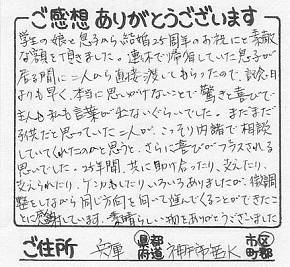 ご感想ありがとうございます
学生の娘と息子から結婚25周年のお祝にと素敵
な額を頂きました。連休で帰省していた息子が
居る間に二人から直接渡してもらったので、記念日
よりも早く、本当に思いがけないことで驚きと喜びで
主人も私も言葉が出ないぐらいでした。まだまだ
子供だと思っていた二人が、こっそり内緒で相談
していてくれたのかと思うと、さらに喜びがプラスされる
思いでした。25年間、共に助け合ったり、支えたり、
支えられたり、ケンカもしたりいろいろありましたが、微調
整をしながら同じ方向を向いて進んでくることができたこ
とに感謝しています。素晴らしい物をありがとうございました
ご住所 兵庫 都道府県 神戸市西区 市区町郡